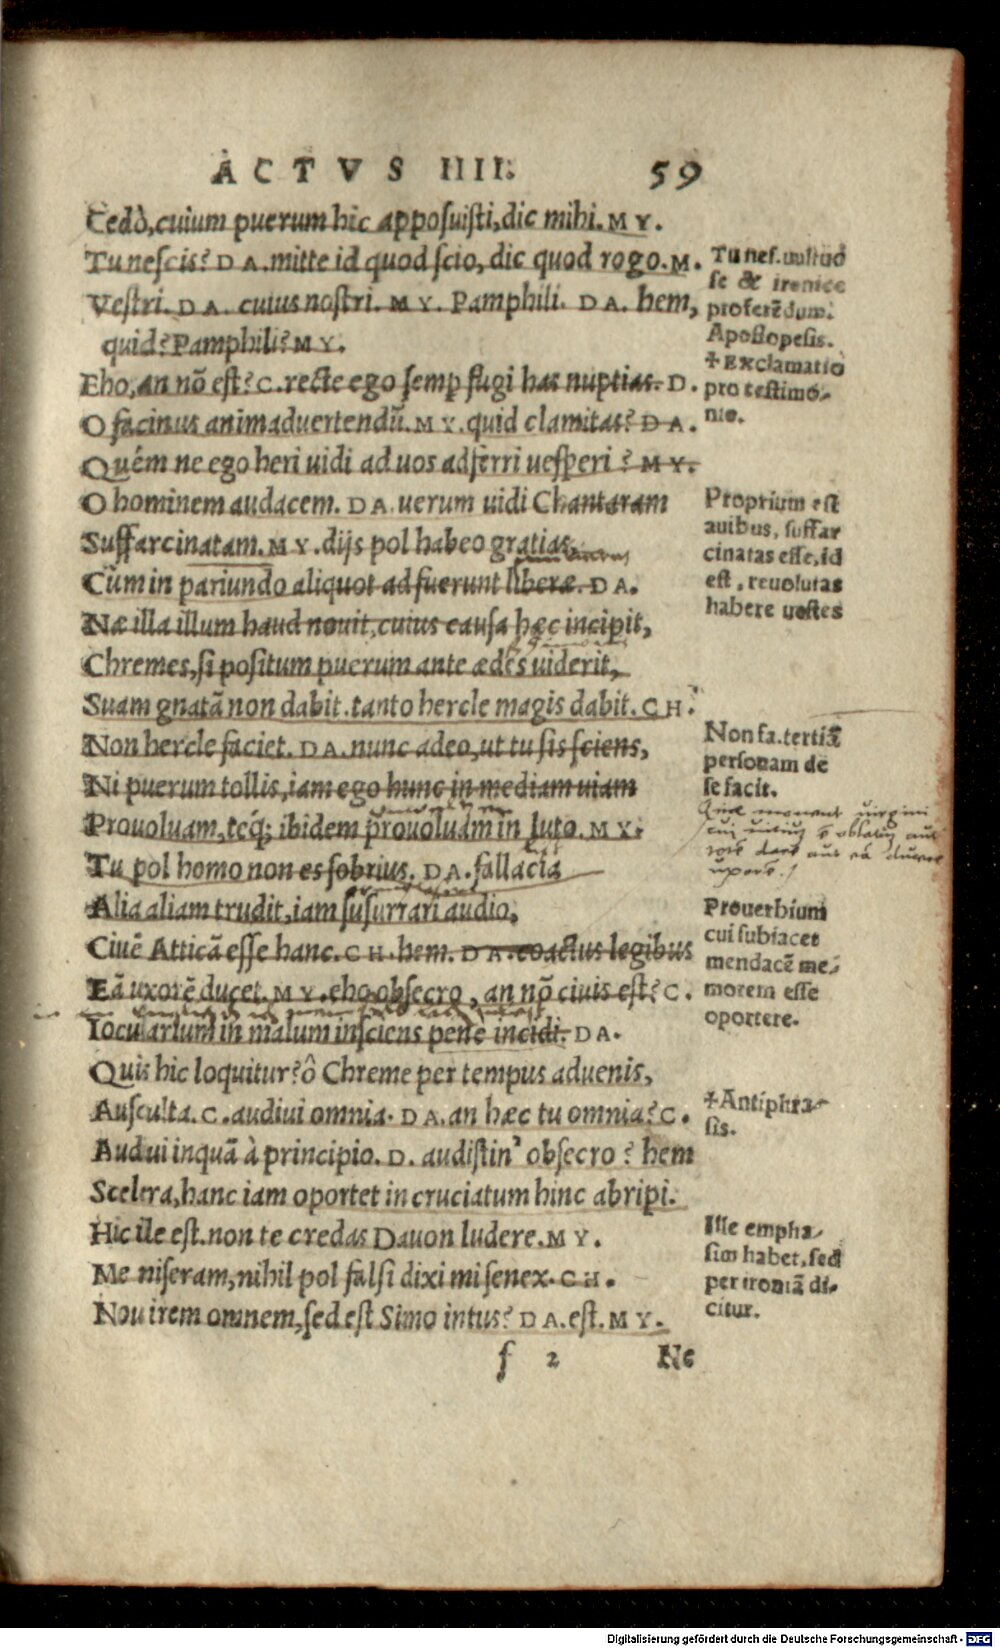 ACTVS IIII. 59
Cedò, cuium puerum hic apposuisti, dic mihi. MY.
Tu nescis? DA. mitte id quod scio, dic quod rogo. M.
Vestri. DA. cuius nostri. MY. Pamphili. DA. hem,
quid? Pamphili? MY.
Eho, an nō est? C. recte ego semp fugi has nuptias. D.
O facinus animaduertendū. MY. quid clamitas? DA.
Quém ne ego heri uidi ad uos adferri uesperi? MY.
O hominem audacem. DA. uerum uidi Chantaram
Suffarcinatam. MY. dijs pol habeo gratias,
Cūm in pariundo aliquot adfuerunt liberæ. DA.
Næ illa illum haud nouit, cuius causa hæc incipit,
Chremes, si positum puerum ante ædes uiderit,
Suam gnatā non dabit. tanto hercle magis dabit. CH.
Non hercle faciet. DA. nunc adeo, ut tu sis sciens,
Ni puerum tollis, iam ego hunc in mediam uiam
Prouoluam, teq́; ibidem prouoluam in luto. MY.
Tu pol homo non es sobrius. DA. fallacia
Alia aliam trudit, iam susurrari audio,
Ciuē Atticā esse hanc. CH. hem. DA. coactus legibus
Eā uxorē ducet. MY. eho obsecro, an nō ciuis est? C.
Iocularium in malum insciens pene incidi. DA.
Quis hic loquitur? ô Chreme per tempus aduenis,
Ausculta. C. audiui omnia. DA. an hæc tu omnia? C.
Audui inquā à principio. D. audistin' obsecro? hem
Scelera, hanc iam oportet in cruciatum hinc abripi.
Hic ile est. non te credas Dauon ludere. MY.
Me niseram, nihil pol falsi dixi mi senex. CH.
Nou irem omnem, sed est Simo intus? DA. est. MY.
f 2 Ne
Tu nes.
se & ironice
proferēdum.
Aposiopesis.
+ Exclamatio
pro testimo-
nio.
Proprium est
auibus, suffar
cinatas esse, id
est, reuolutas
habere uestes
Non fa. tertiā
personam de
se facit.
Prouerbium
cui subiacet
mendacē me-
morem esse
oportere.
+ Antiphra-
sis.
Ille empha-
sim habet, sed
per ironiā di-
citur.
Digitalisierung gefördert durch die Deutsche Forschungsgemeinschaft - DFG